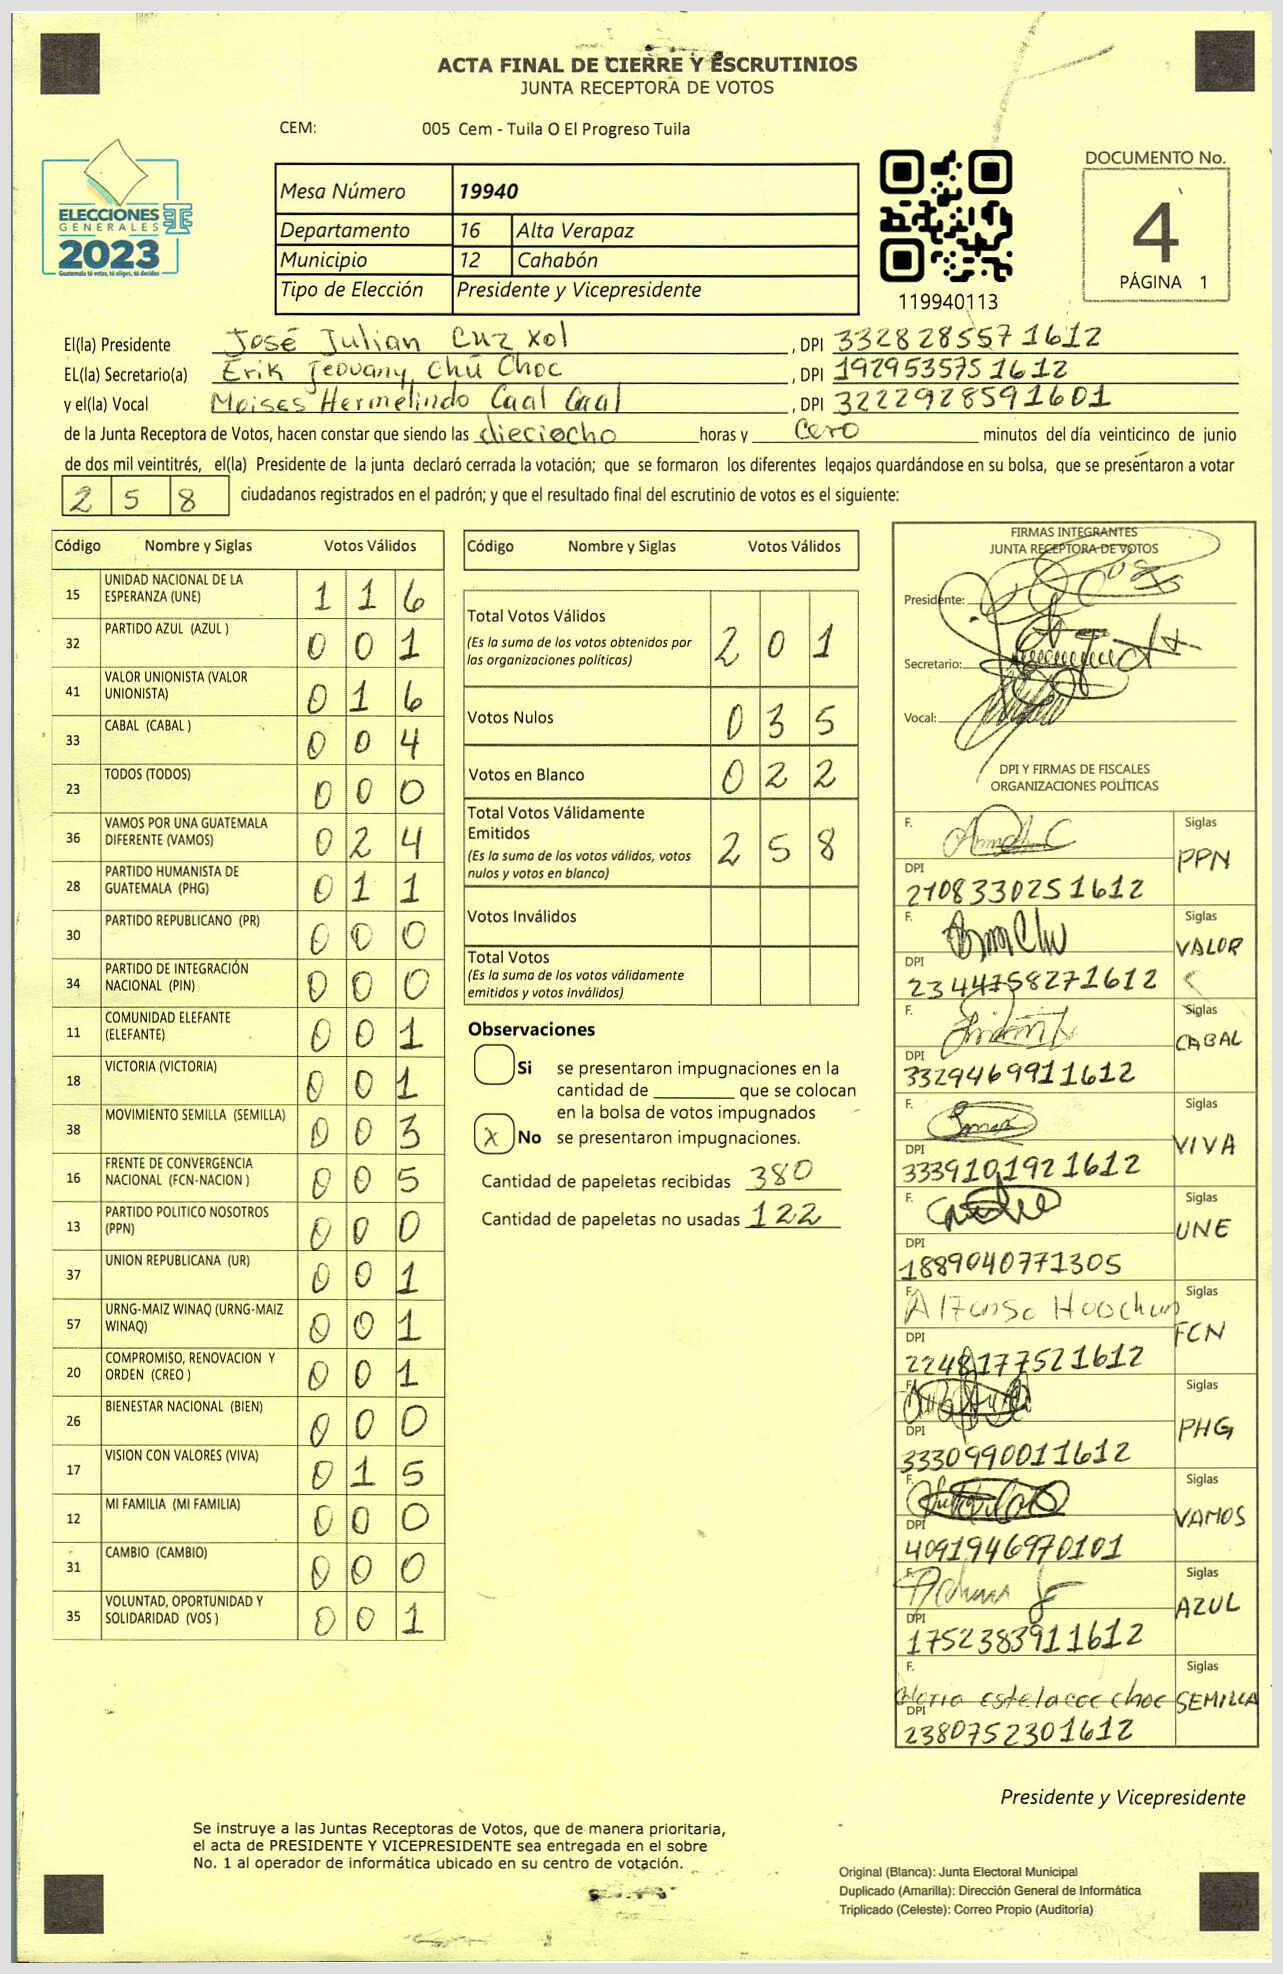 ACTA FINAL DE CIERRE Y ESCRUTINIOS
JUNTA RECEPTORA DE VOTOS
CEM: 005 Cem - Tuila O El Progreso Tuila
ELECCIONES
GENERALES
2023
Guatemala tú votas, tú eliges, tú decides
Mesa Número 19940
Departamento 16 Alta Verapaz
Municipio 12 Cahabón
Tipo de Elección Presidente y Vicepresidente
119940113
DOCUMENTO No.
4
PÁGINA 1
El(la) Presidente José Julian Cuz Xol , DPI 3328285571612
EL(la) Secretario(a) Erik Jeovany Chú Choc , DPI 1929535751612
y el(la) Vocal Moises Hermelindo Caal Caal , DPI 3222928591601
de la Junta Receptora de Votos, hacen constar que siendo las dieciocho horas y cero minutos del día veinticinco de junio
de dos mil veintitrés, el(la) Presidente de la junta declaró cerrada la votación; que se formaron los diferentes legajos guardándose en su bolsa, que se presentaron a votar
258 ciudadanos registrados en el padrón; y que el resultado final del escrutinio de votos es el siguiente:
Código Nombre y Siglas Votos Válidos
15 UNIDAD NACIONAL DE LA ESPERANZA (UNE) 1 1 6
32 PARTIDO AZUL (AZUL ) 0 0 1
41 VALOR UNIONISTA (VALOR UNIONISTA) 0 1 6
33 CABAL (CABAL ) 0 0 4
23 TODOS (TODOS) 0 0 0
36 VAMOS POR UNA GUATEMALA DIFERENTE (VAMOS) 0 2 4
28 PARTIDO HUMANISTA DE GUATEMALA (PHG) 0 1 1
30 PARTIDO REPUBLICANO (PR) 0 0 0
34 PARTIDO DE INTEGRACIÓN NACIONAL (PIN) 0 0 0
11 COMUNIDAD ELEFANTE (ELEFANTE) 0 0 1
18 VICTORIA (VICTORIA) 0 0 1
38 MOVIMIENTO SEMILLA (SEMILLA) 0 0 3
16 FRENTE DE CONVERGENCIA NACIONAL (FCN-NACION ) 0 0 5
13 PARTIDO POLITICO NOSOTROS (PPN) 0 0 0
37 UNION REPUBLICANA (UR) 0 0 1
57 URNG-MAIZ WINAQ (URNG-MAIZ WINAQ) 0 0 1
20 COMPROMISO, RENOVACION Y ORDEN (CREO ) 0 0 1
26 BIENESTAR NACIONAL (BIEN) 0 0 0
17 VISION CON VALORES (VIVA) 0 1 5
12 MI FAMILIA (MI FAMILIA) 0 0 0
31 CAMBIO (CAMBIO) 0 0 0
35 VOLUNTAD, OPORTUNIDAD Y SOLIDARIDAD (VOS ) 0 0 1
Código Nombre y Siglas Votos Válidos
Total Votos Válidos 2 0 1
(Es la suma de los votos obtenidos por
las organizaciones políticas)
Votos Nulos 0 3 5
Votos en Blanco 0 2 2
Total Votos Válidamente
Emitidos 2 5 8
(Es la suma de los votos válidos, votos
nulos y votos en blanco)
Votos Inválidos
Total Votos
(Es la suma de los votos válidamente
emitidos y votos inválidos)
Observaciones
Si se presentaron impugnaciones en la
cantidad de que se colocan
en la bolsa de votos impugnados
X No se presentaron impugnaciones.
Cantidad de papeletas recibidas 380
Cantidad de papeletas no usadas 122
FIRMAS INTEGRANTES
JUNTA RECEPTORA DE VOTOS
Presidente:
Secretario:
Vocal:
DPI Y FIRMAS DE FISCALES
ORGANIZACIONES POLÍTICAS
F. Siglas
DPI PPN
2108330251612
F. Siglas
DPI VALOR
2344758271612
F. Siglas
DPI CABAL
3329469911612
F. Siglas
DPI VIVA
3339101921612
F. Siglas
DPI UNE
1889040771305
F. Siglas
DPI FCN
2248177521612
F. Siglas
DPI PHG
3330990011612
F. Siglas
DPI VAMOS
4091946970101
F. Siglas
DPI AZUL
1752383911612
F. Siglas
DPI SEMILLA
2380752301612
Presidente y Vicepresidente
Se instruye a las Juntas Receptoras de Votos, que de manera prioritaria,
el acta de PRESIDENTE Y VICEPRESIDENTE sea entregada en el sobre
No. 1 al operador de informática ubicado en su centro de votación.
Original (Blanca): Junta Electoral Municipal
Duplicado (Amarilla): Dirección General de Informática
Triplicado (Celeste): Correo Propio (Auditoría)